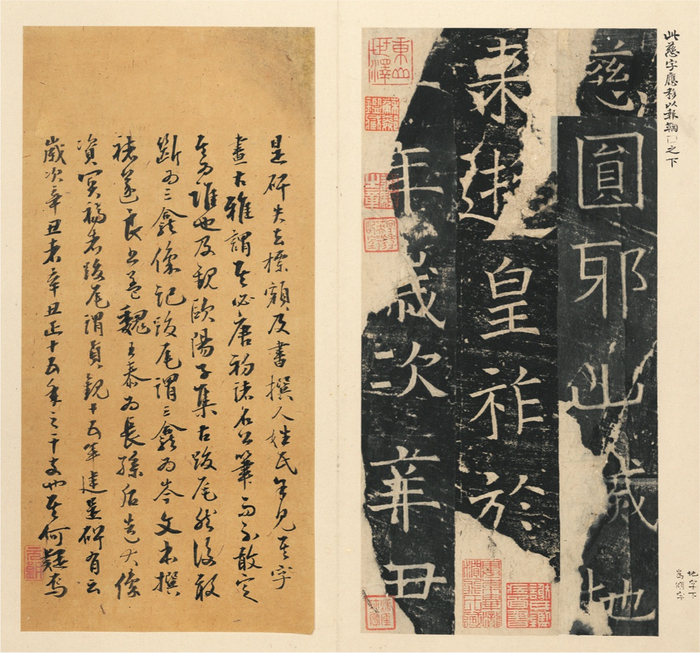 此慈字應移以報鞠之下
慈圓邪山我地
地字下
來逮皇祚於
年歲次辛丑
東山世澤
是碑失去標額及書撰人姓氏予見其字
畫古雅謂其必唐初諸名公筆而不敢定
為誰也及觀歐陽子集古跋尾然後敢
斷為三龕像記跋尾謂三龕為岑文本撰
褚遂良書蓋魏王泰為長孫后造大像
資冥福者跋尾謂貞觀十五年建是碑有云
歲次辛丑者辛丑正十五年之干支也其何疑焉